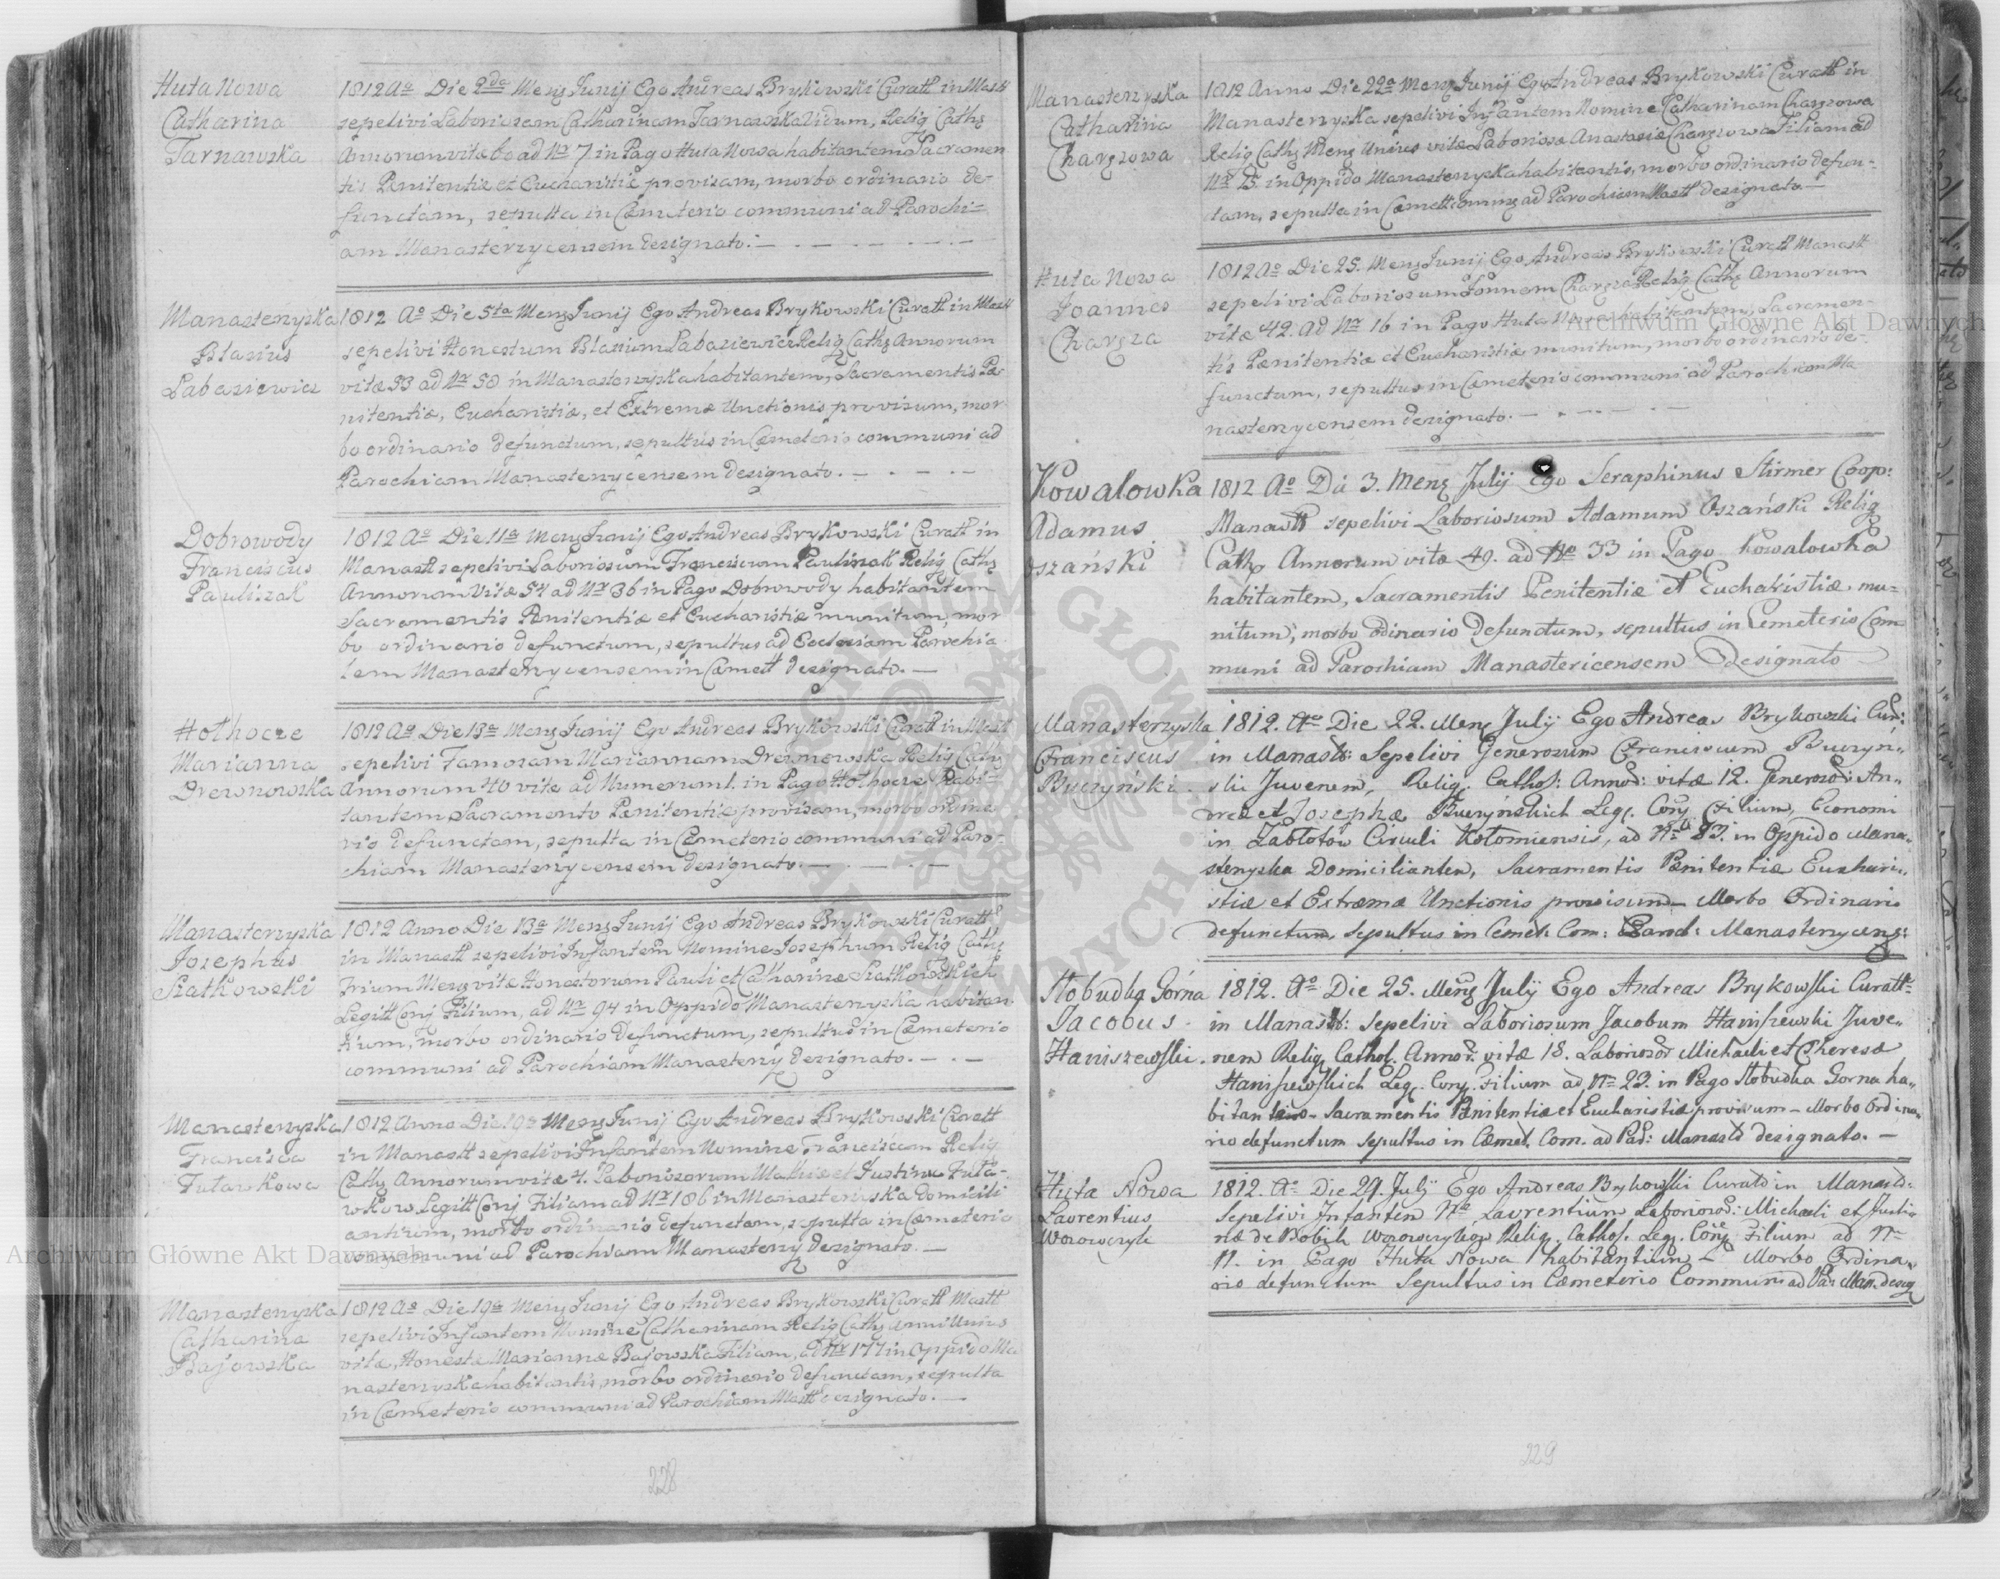 Huta Nowa
Catharina
Tarnawska
1812 Ao Die 2da Mens Junij Ego Andreas Brykowski Curatt in Mastt
sepelivi Laboriosam Catharinam Tarnawska Viduam, Relig Cath
Annorum vitæ 60 ad Nr 7 in Pago Huta Nowa habitantem Sacramen
tis Pænitentiæ et Eucharistiæ provisam, morbo ordinario de-
functam, sepulta in Cæmeterio communi ad Parochi=
am Manasterzycensem designato.
Manasterzyska
Blasius
Labasiewicz
1812 Ao Die 5ta Mens Junij Ego Andreas Brykowski Curatt in Mastt
sepelivi Honestum Blasium Labasiewicz Relig Cath Annorum
vitæ 53 ad Nr 50 in Manasterzyska habitantem, Sacramentis Pæ-
nitentiæ, Eucharistiæ, et Extremæ Unctionis provisum, mor
bo ordinario defunctum, sepultus in Cæmeterio communi ad
Parochiam Manasterzycensem designato.
Dobrowody
Franciscus
Pauliszak
1812 Ao Die 11a Mens Junij Ego Andreas Brykowski Curatt in
Manastt sepelivi Laboriosum Franciscum Pauliszak Relig Cath
Annorum Vitæ 54 ad Nr 36 in Pago Dobrowody habitantem
Sacramentis Pænitentiæ et Eucharistiæ munitum, mor
bo ordinario defunctum, sepultus ad Ecclesiam Parochia
lem Manasterzycensem in Cæmett designato.
Hołhocze
Marianna
Drewnowska
1812 Ao Die 13a Mens Junij Ego Andreas Brykowski Curatt in Mastt
sepelivi Famosam Mariannam Drewnowska Relig Cath
Annorum 40 vitæ ad Numerum 1. in Pago Hołhocze habi=
tantem Sacramento Pænitentiæ provisam, morbo ordina
rio defunctam, sepulta in Cæmeterio communi ad Paro-
chiam Manasterzycensem designato.
Manasterzyska
Josephus
Siatkowski
1812 Anno Die 13a Mens Junij Ego Andreas Brykowski Curatt
in Manastt sepelivi Infantem Nomine Josephum Relig Cath
Trium Mens vitæ Honestorum Pauli et Catharinæ Siatkowskich
Legitt Conj Filium, ad Nr 94 in Oppido Manasterzyska habitan
tium, morbo ordinario defunctum, sepultus in Cæmeterio
communi ad Parochiam Manasterzy designato.
Manasterzyska
Francisca
Futawkowa
1812 Anno Die 19a Mens Junij Ego Andreas Brykowski Curatt
in Manastt sepelivi Infantem Nomine Franciscam Relig
Cath Annorum vitæ 4. Laboriosorum Mathiæ et Justinæ Futa-
wkow Legitt Conj Filiam ad Nr 186 in Manasterzyska Domicili
antium, morbo ordinario defunctam, sepulta in Cæmeterio
communi ad Parochiam Manasterzy designato.
Manasterzyska
Catharina
Bajowska
1812 Ao Die 19a Mens Junij Ego Andreas Brykowski Curatt Mastt
sepelivi Infantem Nomine Catharinam Relig Cath Anni Unius
vitæ, Honestæ Mariannæ Bajowska Filiam, ad Nr 177 in Oppido Ma
nasterzyska habitantis, morbo ordinario defunctam, sepulta
in Cæmeterio communi ad Parochiam Mastt designato.
228
Manasterzyska
Catharina
Charszowa
1812 Anno Die 22a Mens Junij Ego Andreas Brykowski Curatt in
Manasterzyska sepelivi Infantem Nomine Catharinam Charszowa
Relig Cath Mens Unius vitæ Laboriosæ Anastasiæ Charszowa Filiam ad
Nr 25 in Oppido Manasterzyska habitantis, morbo ordinario defun-
ctam, sepulta in Cæmett comm ad Parochiam Mastt designato.
Huta Nowa
Joannes
Charsza
1812 Ao Die 25. Mens Junij Ego Andreas Brykowski Curatt Manastt
sepelivi Laboriosum Joannem Charsza Relig Cath Annorum
vitæ 42. ad Nr 16 in Pago Huta Nowa habitantem, Sacramen-
tis Pænitentiæ et Eucharistiæ munitum, morbo ordinario de-
functum, sepultus in Cæmeterio communi ad Parochiam Ma
nasterzycensem designato.
Kowalowka
Adamus
Oszański
1812 Ao Die 3. Mens Julij Ego Seraphinus Stirmer Coop:
Manastt sepelivi Laboriosum Adamum Oszański Relig
Cath Annorum vitæ 49. ad No 33 in Pago Kowalowka
habitantem, Sacramentis Penitentiæ et Eucharistiæ mu=
nitum, morbo odinario defunctum, sepultus in Cemeterio Com=
muni ad Parochiam Manastericensem Designato
Manasterzyska
Franciscus
Buczyński.
1812. Ao Die 22. Mens Julij Ego Andreas Brykowski Cur:
in Manast: Sepelivi Generosum Franciscum Buczyn-
ski Juvenem, Relig. Cathol: Annor: vitæ 12. Generosor: An-
dreæ et Josephæ Buczyńskich Leg. Conj. Filium, Economi
in Zabłotow Circuli Kołomiensis, ad No 83. in Oppido Mana-
sterzyska Domiciliantem, Sacramentis Pænitentiæ Euchari-
stiæ et Extræmæ Unctionis provisum Morbo Ordinario
defunctum, Sepultus in Cemet: Com: Paroch: Manasterzycens:
Słobudka Gorna
Jacobus
Haniszewski.
1812. Ao Die 25. Mens Julij Ego Andreas Brykowski Curatt
in Manast: Sepelivi Laboriosum Jacobum Haniszewski Juve-
nem Relig. Cathol. Annor. vitæ 18. Laboriosor Michaeli et Theresæ
Haniszewskich Leg. Conj. Filium ad No 23. in Pago Słobudka Gorna ha-
bitantem Sacramentis Pænitentiæ et Eucharistiæ provisum - Morbo Ordina-
rio defunctum Sepultus in Cæmet. Com. ad Par: Manast designato.
Huta Nowa
Laurentius
Worowczyk
1812. Ao Die 29. Julij Ego Andreas Brykowski Curatt in Manast:
Sepelivi Infantem Ne Laurentium Laboriosor: Michaeli et Justi-
næ de Bobik Worowczykow Relig. Cathol. Leg. Conj. Filium ad No
11. in Pago Huta Nowa habitantium Morbo Ordina-
rio defunctum Sepultus in Cæmeterio Communi ad Par Man. desig
229
Archiwum Główne Akt Dawnych
Archiwum Główne Akt Dawnych